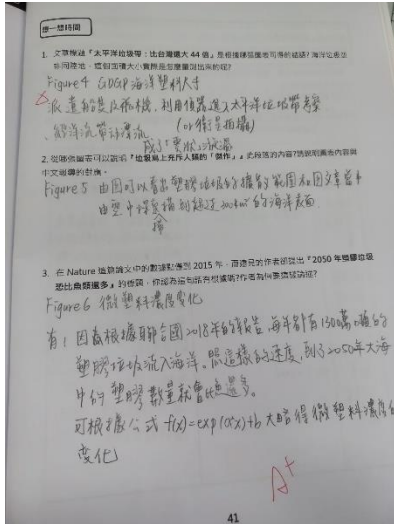 想一想時間
1. 文章標題「太平洋垃圾帶：比台灣還大 44 倍」是根據哪張圖表可得的結論？海洋垃圾並
非同陸地，這個面積大小實際是怎麼量測出來的呢？
Figure 4 GDGP 海洋塑料大手
派遣船隻及飛機，利用偵器進入太平洋垃圾帶考察
(or 衛星拍攝)
、解洋流帶
成了「 」狀
2. 從哪張圖表可以說明「垃圾島上充斥人類的「傑作」」此段落的內容？請說明圖表內容與
中文報導的對應。
Figure 5 由圖可以看出塑膠垃圾的擴散範圍和因文章當中
由空中 掃描到超過300km²的海洋表面.
3. 在 Nature 這篇論文中的數據點僅到 2015 年，而這兒的作者卻提出「2050 年塑膠垃圾
恐比魚類還多」的標題，你認為這句話有根據嗎？作者為何要這樣論述？
Figure 6 微塑料濃度變化
有！因為根據聯合國2018年的報告，每年都有1300萬噸的
塑膠垃圾流入海洋。照這樣的速度，到了2050年大海
中的塑膠數量就會比魚還多。
可根據公式 f(x)=exp(a*x)+b 大略得微塑料濃度的
變化
A+
41